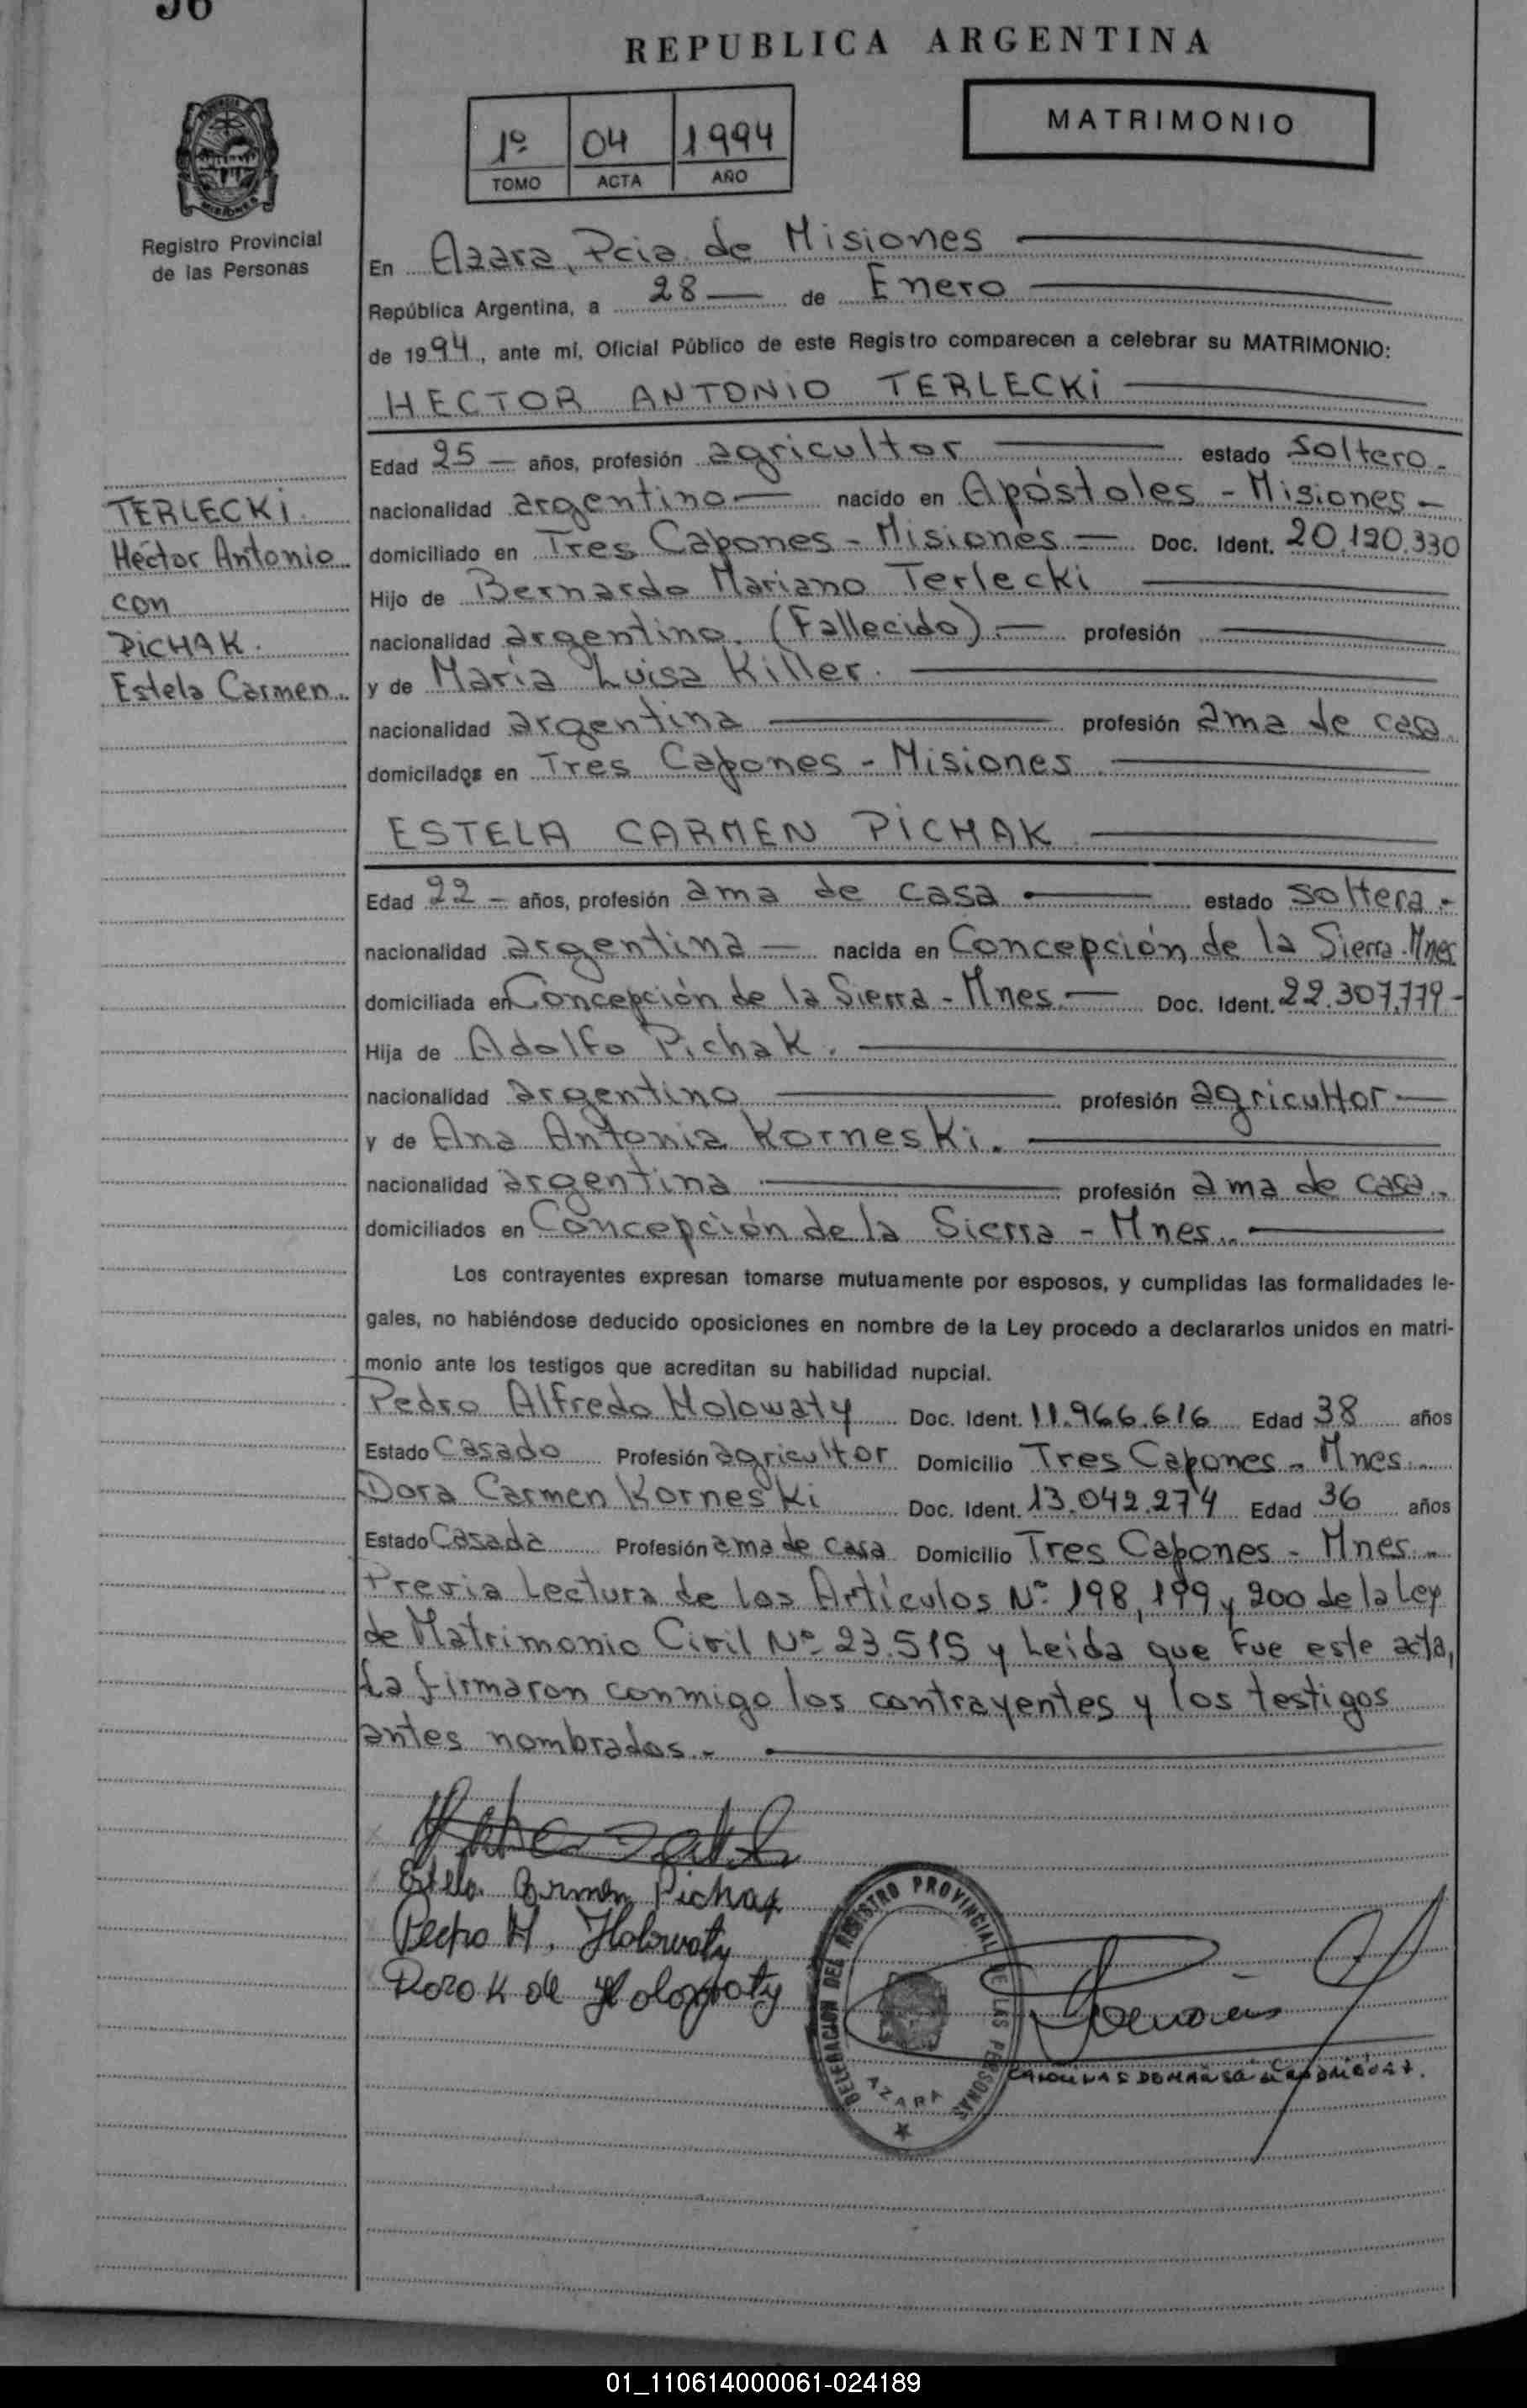 REPUBLICA ARGENTINA
MATRIMONIO
1º 04 1994
TOMO ACTA AÑO
MISIONES
Registro Provincial
de las Personas
En Azara, Pcia. de Misiones
República Argentina, a 28 — de Enero
de 1994, ante mí, Oficial Público de este Registro comparecen a celebrar su MATRIMONIO:
HECTOR ANTONIO TERLECKI
Edad 25 — años, profesión agricultor estado soltero.
nacionalidad argentino — nacido en Apóstoles - Misiones -
domiciliado en Tres Capones - Misiones — Doc. Ident. 20.120.330
Hijo de Bernardo Mariano Terlecki
nacionalidad argentino. (Fallecido). — profesión
y de María Luisa Killer.
nacionalidad argentina profesión ama de casa.
domicilados en Tres Capones - Misiones
TERLECKI
Héctor Antonio
con
PICHAK.
Estela Carmen.
ESTELA CARMEN PICHAK
Edad 22 — años, profesión ama de casa estado soltera.-
nacionalidad argentina — nacida en Concepción de la Sierra-Mnes
domiciliada en Concepción de la Sierra - Mnes. — Doc. Ident. 22.307.779 -
Hija de Adolfo Pichak.
nacionalidad argentino profesión agricultor —
y de Ana Antonia Korneski.
nacionalidad argentina profesión ama de casa.
domiciliados en Concepción de la Sierra - Mnes.
Los contrayentes expresan tomarse mutuamente por esposos, y cumplidas las formalidades le-
gales, no habiéndose deducido oposiciones en nombre de la Ley procedo a declararlos unidos en matri-
monio ante los testigos que acreditan su habilidad nupcial.
Pedro Alfredo Holowaty Doc. Ident. 11.966.616 Edad 38 años
Estado Casado Profesión agricultor Domicilio Tres Capones - Mnes.
Dora Carmen Korneski Doc. Ident. 13.042.274 Edad 36 años
Estado Casada Profesión ama de casa Domicilio Tres Capones - Mnes.
Previa Lectura de los Artículos Nº 198, 199 y 200 de la Ley
de Matrimonio Civil Nº 23.515 y Leída que fue este acta,
La firmaron conmigo los contrayentes y los testigos
antes nombrados.-
Estela Carmen Pichak
Pedro A. Holowaty
Dora K de Holowaty
DELEGACION DEL REGISTRO PROVINCIAL DE LAS PERSONAS
AZARA
01_110614000061-024189